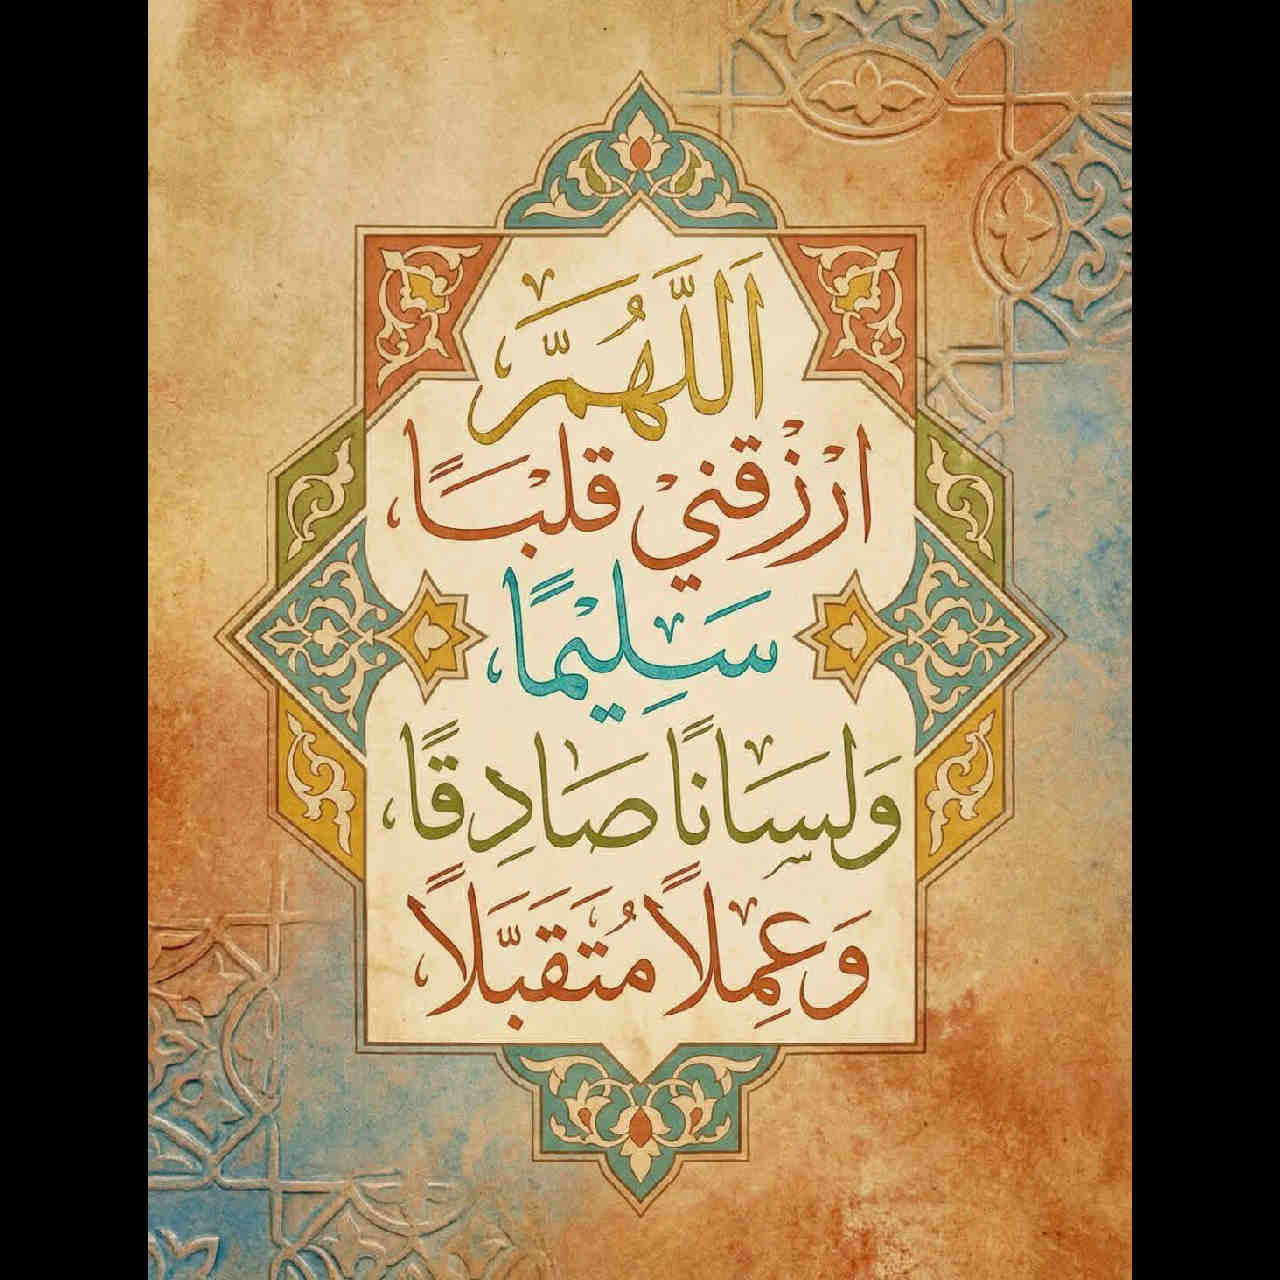 اَللَّهُمَّ
ارْزُقنيْ قلبًا
سَلِيْمًا،
وَلسَانًا صَادِقًا،
وَعمِلاً مُتَقَبَّلاً